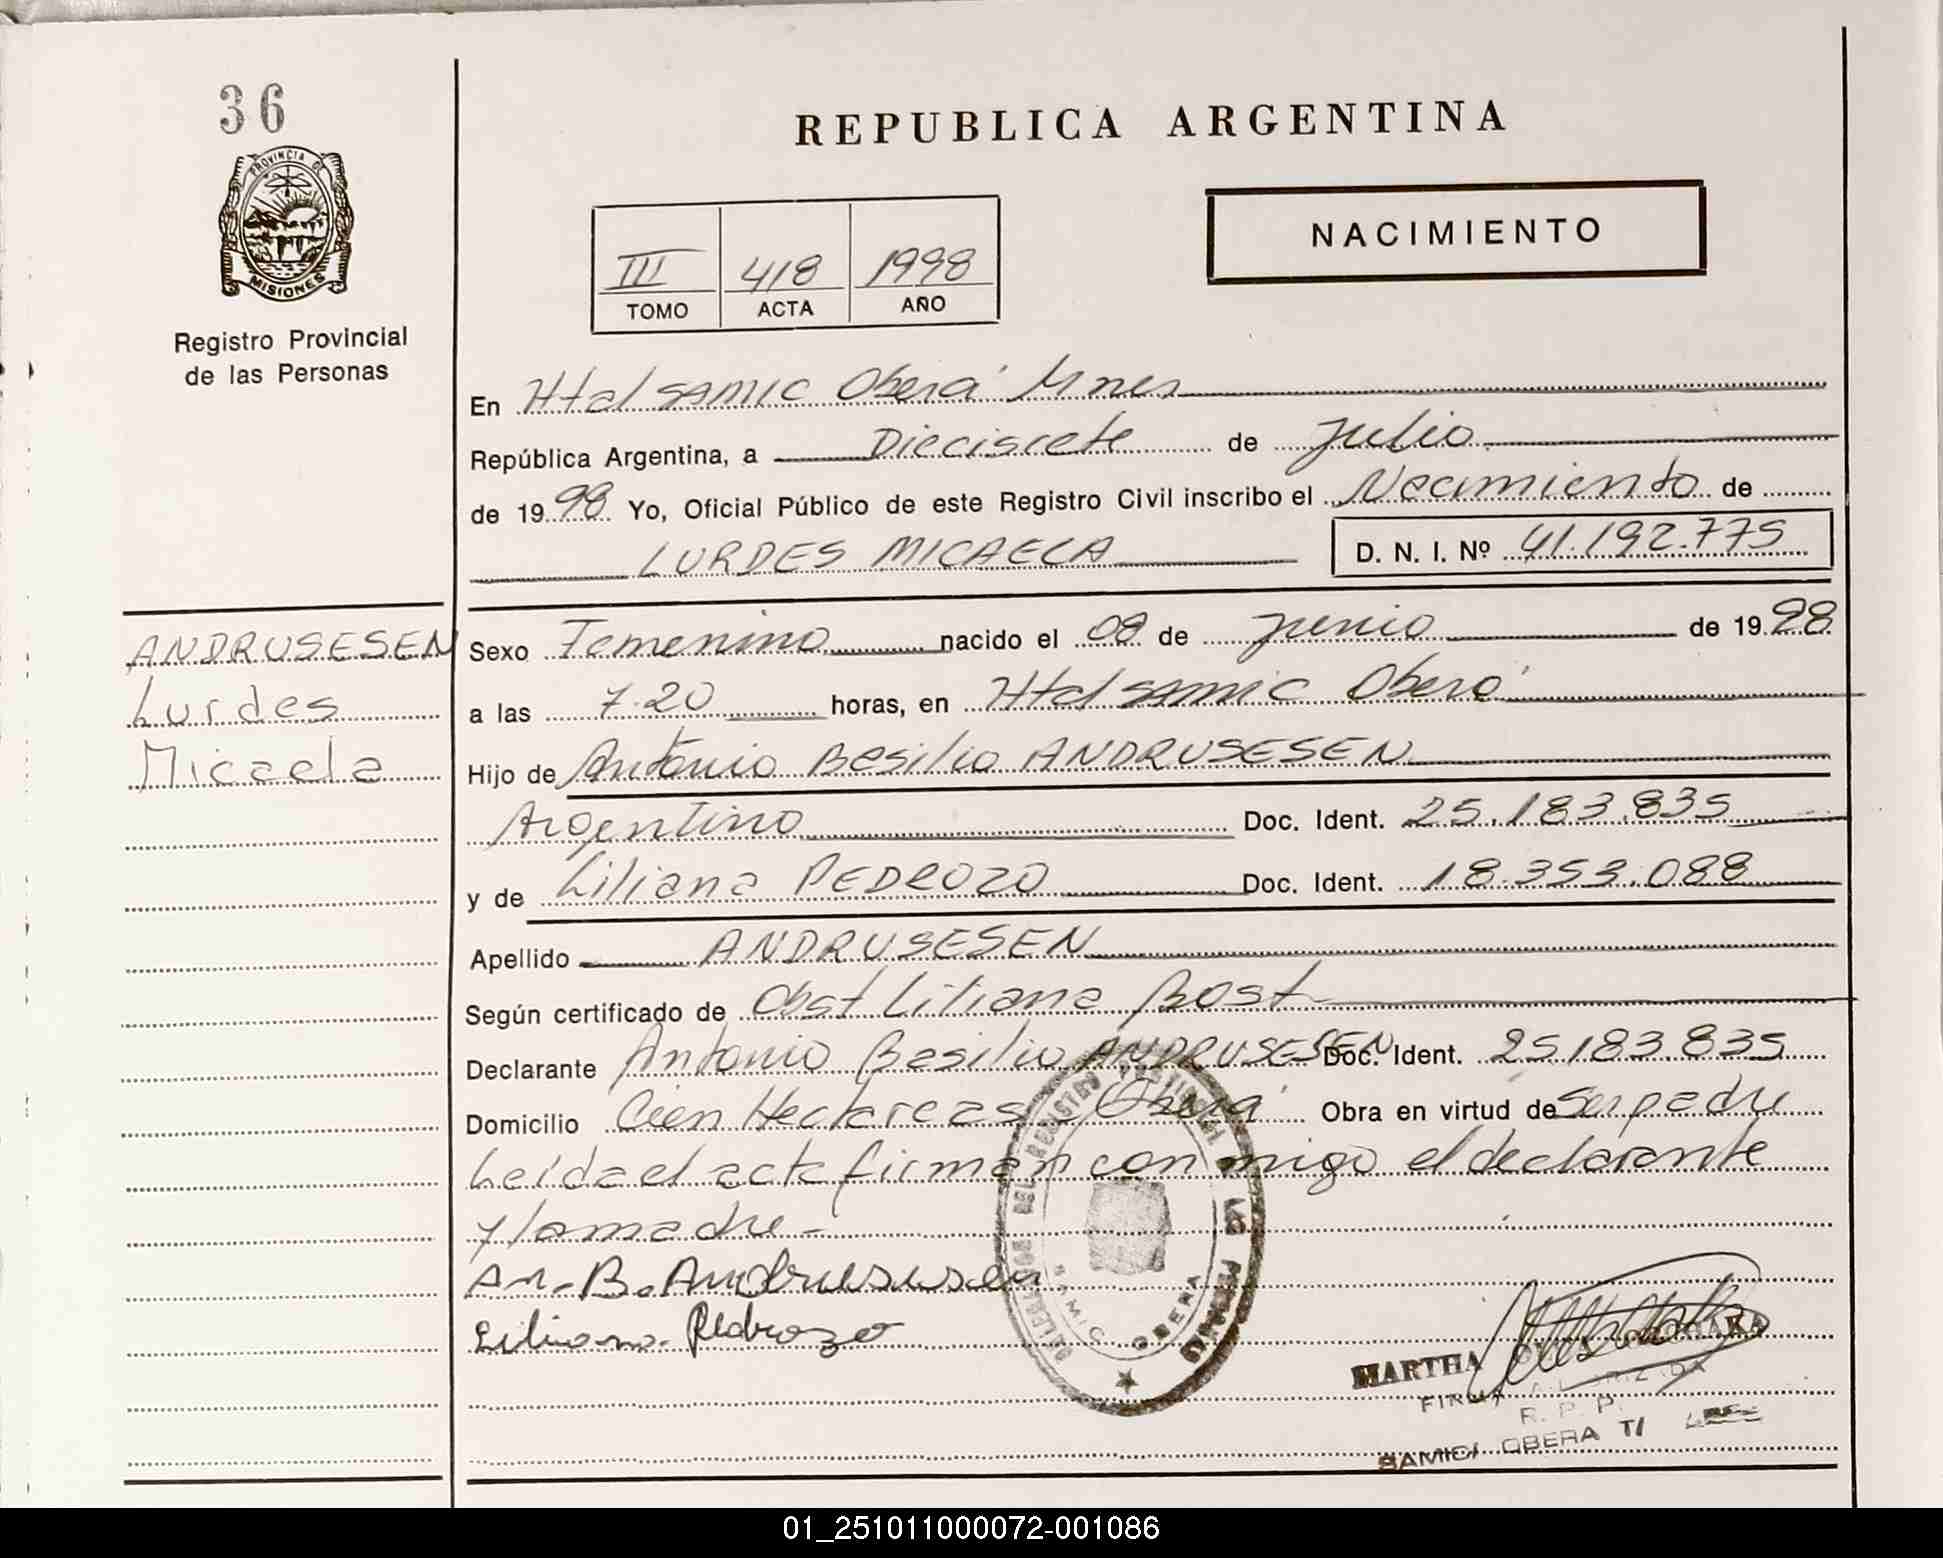 36
PROVINCIA DE
MISIONES
Registro Provincial
de las Personas
REPUBLICA ARGENTINA
NACIMIENTO
III 418 1998
TOMO ACTA AÑO
En Htal SAMIC Oberá Mnes
República Argentina, a Diecisiete de Julio
de 1998 Yo, Oficial Público de este Registro Civil inscribo el Nacimiento de
LURDES MICAELA D. N. I. Nº 41.192.775
ANDRUSESEN
Lurdes
Micaela
Sexo Femenino nacido el 08 de junio de 1998
a las 7.20 horas, en Htal SAMIC Oberá
Hijo de Antonio Basilio ANDRUSESEN
Argentino Doc. Ident. 25.183.835
y de Liliana PEDROZO Doc. Ident. 18.353.088
Apellido ANDRUSESEN
Según certificado de Obst Liliana Bost
Declarante Antonio Basilio ANDRUSESEN Doc. Ident. 25183835
Domicilio Cien Hectareas Oberá Obra en virtud de Ser padre
Leída el acta firman con migo el declarante
y la madre -
An. B. Andrusesen
Liliana. Pedrozo
REGISTRO PROVINCIAL DE LAS PERSONAS
SAMIC OBERA
MARTHA
FIRMA AUTORIZADA
R. P. P.
SAMIC OBERA
01_251011000072-001086